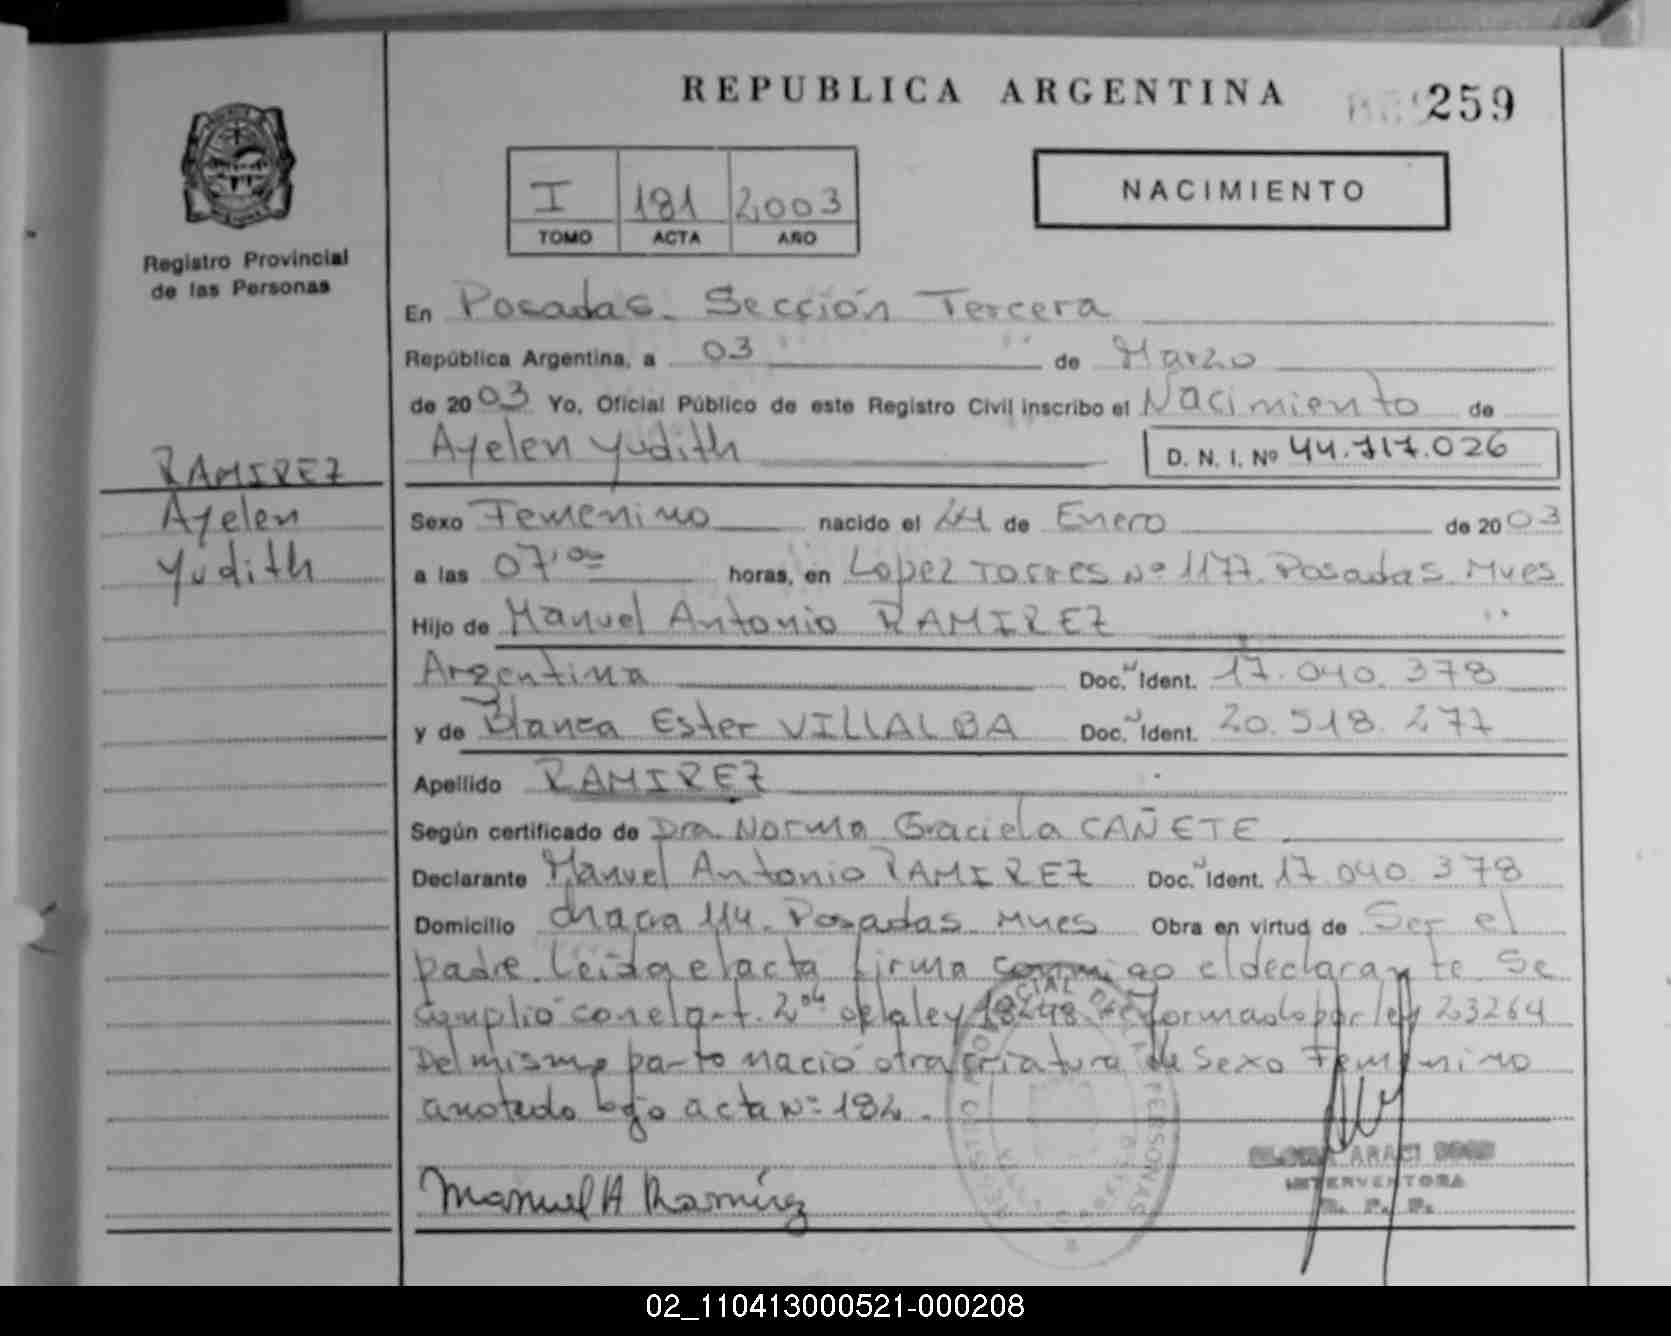 REPUBLICA ARGENTINA
259
I 181 2003
TOMO ACTA AÑO
NACIMIENTO
Registro Provincial
de las Personas
En Posadas. Sección Tercera
República Argentina, a 03 de Marzo
de 2003 Yo, Oficial Público de este Registro Civil inscribo el Nacimiento de
Ayelen Yudith
D. N. I. Nº 44.717.026
RAMIREZ
Ayelen
Yudith
Sexo Femenino nacido el 24 de Enero de 2003
a las 07,00 horas, en Lopez Torres Nº 1177. Posadas. Mnes
Hijo de Manuel Antonio RAMIREZ
Argentina Doc. Ident. 17.040.378
y de Blanca Ester VILLALBA Doc. Ident. 20.518.277
Apellido RAMIREZ
Según certificado de Dra. Norma Graciela CAÑETE
Declarante Manuel Antonio RAMIREZ Doc. Ident. 17.040.378
Domicilio chacra 114. Posadas Mnes Obra en virtud de Ser el
padre. Leida el acta firma conmigo el declarante Se
cumplió con el art. 2do de la ley 18248 reformado por ley 23264
Del mismo parto nació otra criatura de Sexo Femenino
anotado bajo acta Nº 182.
Manuel A Ramírez
REGISTRO PROVINCIAL DE LAS PERSONAS
ARACI
INTERVENTORA
R. P. P.
02_110413000521-000208